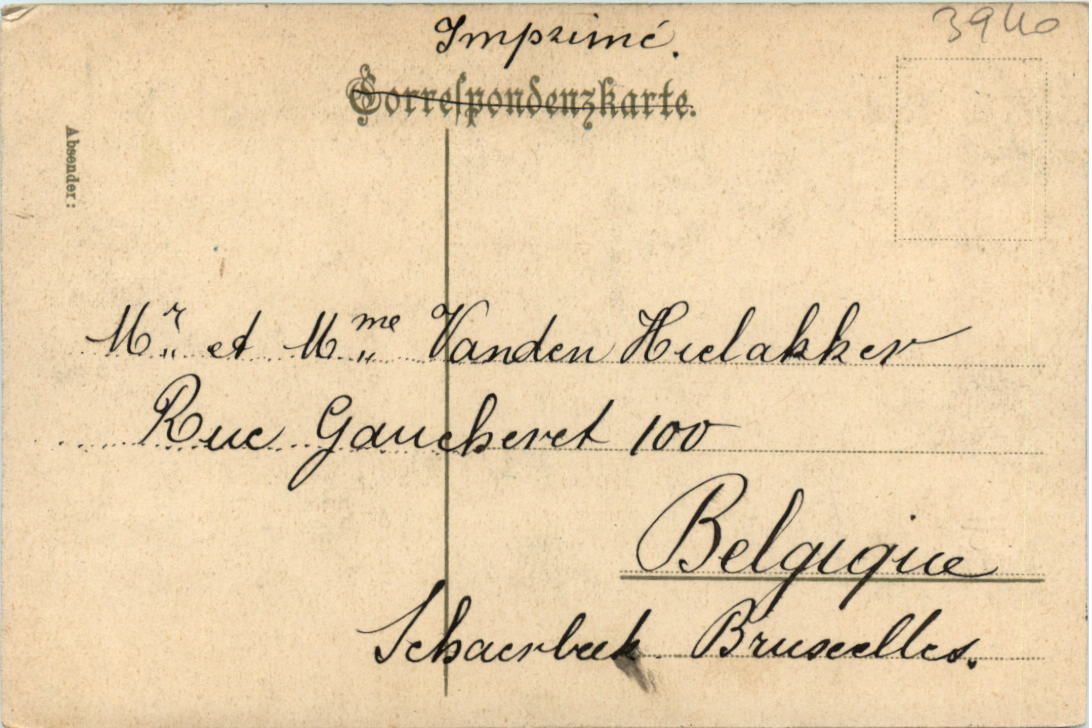 3940
Imprimé.
Correspondenzkarte.
Absender:
Mr et Mme Vanden Hielakker
Rue Gaucheret 100
Belgique
Schaerbeek Bruxelles.